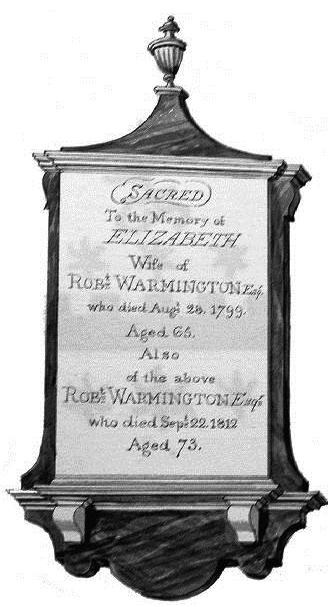 SACRED
To the Memory of
ELIZABETH
Wife of
ROBt. WARMINGTON Esq.
who died Augt. 28. 1799.
Aged 65.
Also
of the above
ROBt. WARMINGTON Esqr.
who died Sept. 22. 1812
Aged 73.